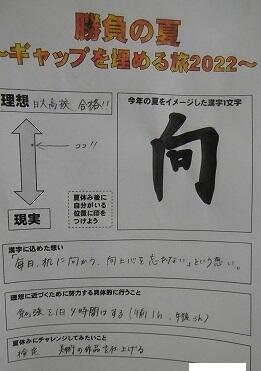 勝負の夏
～ギャップを埋める旅2022～
理想 日大高校 合格!!
ココ!!
現実
夏休み後に
自分がいる
位置に印を
つけよう
今年の夏をイメージした漢字1文字
向
漢字に込めた想い
「毎日、机に向かう、向上心を忘れない」という思い。
理想に近づくために努力する具体的に行うこと
勉強を1日4時間はする(
夏休みにチャレンジしてみたいこと
検定
の作品を仕上げる